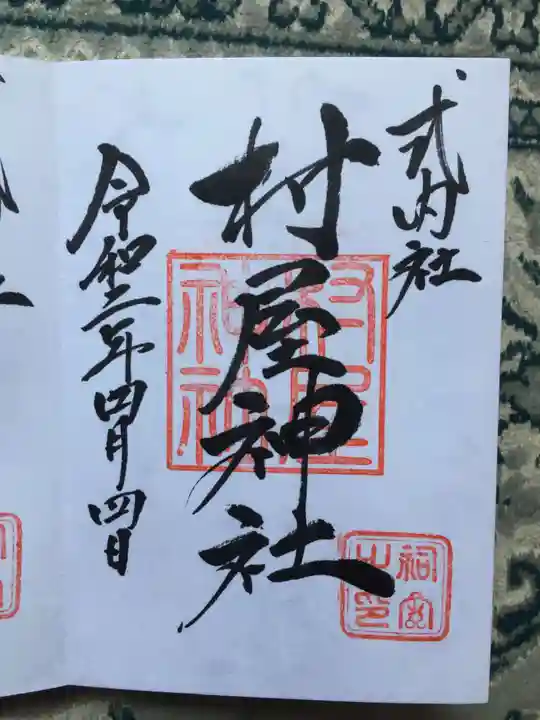 式内社
村屋神社
令和二年四月四日
村屋
神社
祠官
之印
社